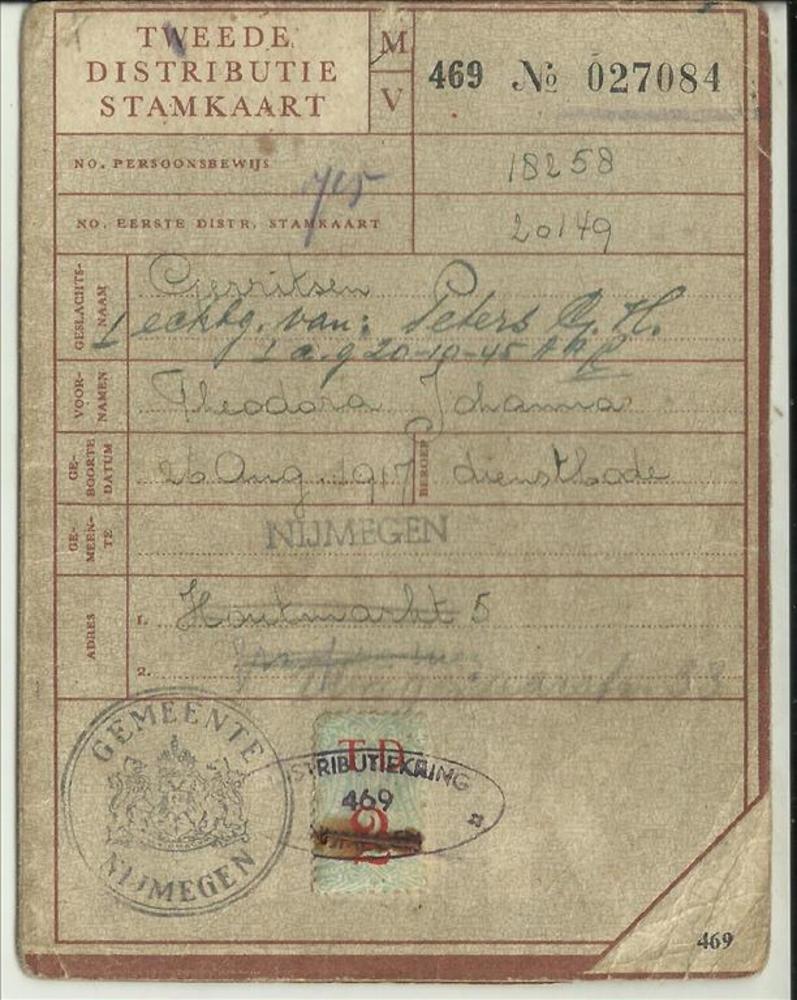 TWEEDE
DISTRIBUTIE
STAMKAART
M
V
469 № 027084
NO. PERSOONSBEWIJS
18258
NO. EERSTE DISTR. STAMKAART
20149
GESLACHTS-
NAAM
Gerritsen
echtg. van: Peters G. H.
20-10-45
VOOR-
NAMEN
Theodora Johanna
GE-
BOORTE
DATUM
26 Aug. 1917
BEROEP
dienstbode
GE-
MEEN-
TE
NIJMEGEN
ADRES
1. Houtmarkt 5
2.
33
GEMEENTE
NIJMEGEN
T D
STRIBUTIEKRING
469
2
469